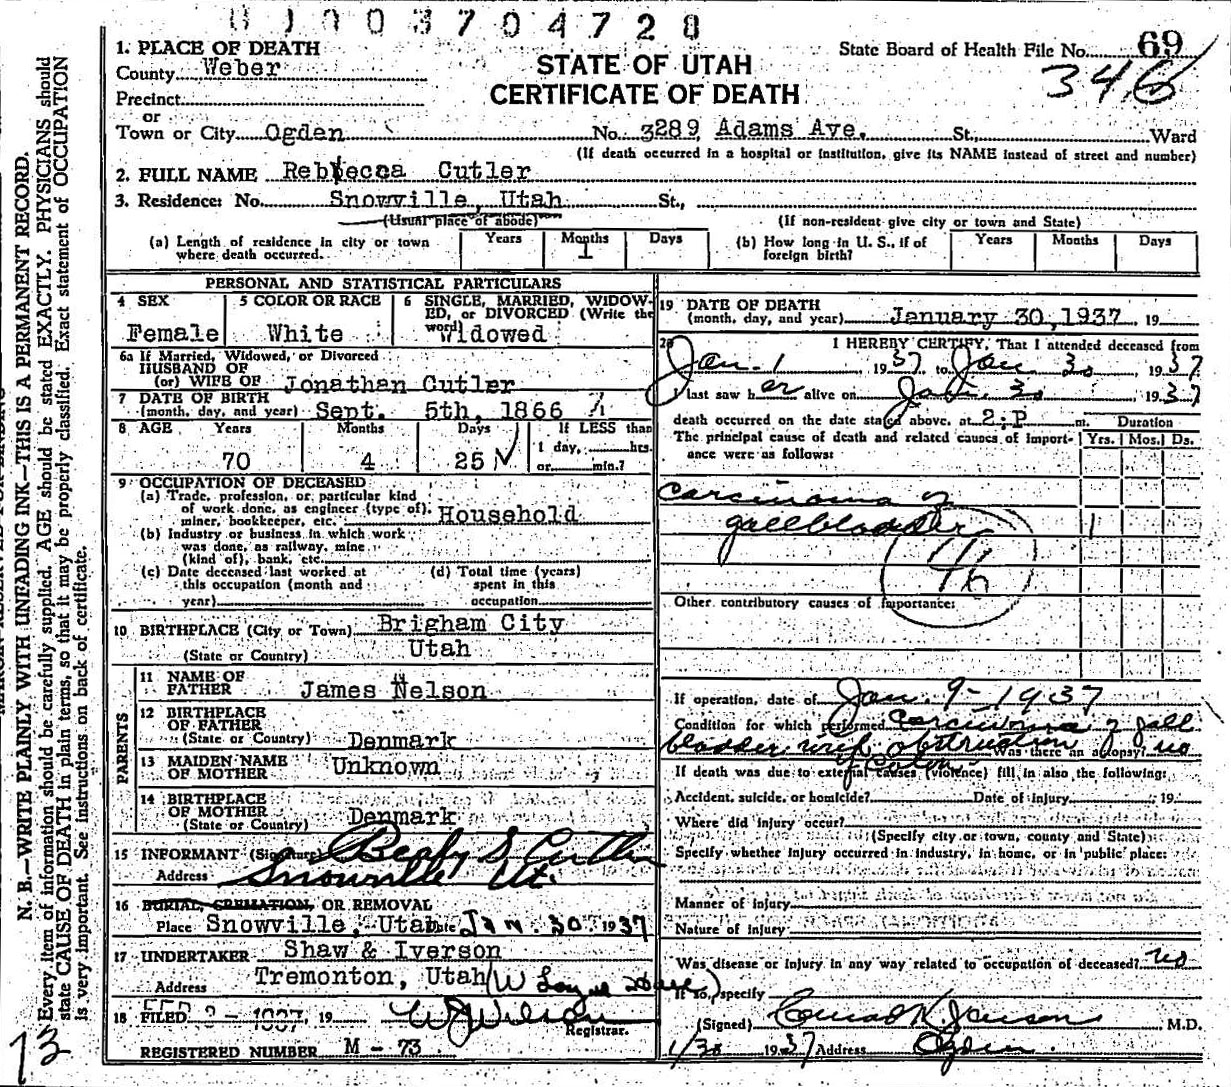 8 1 0 0 3 7 0 4 7 2 8
1. PLACE OF DEATH
County Weber
Precinct
or
Town or City Ogden
STATE OF UTAH
CERTIFICATE OF DEATH
State Board of Health File No. 69
346
No. 3289 Adams Ave. St., Ward
(If death occurred in a hospital or institution, give its NAME instead of street and number)
2. FULL NAME Rebecca Cutler
3. Residence: No. Snowville, Utah St.,
(Usual place of abode)
(If non-resident give city or town and State)
(a) Length of residence in city or town where death occurred. Years Months 1 Days
(b) How long in U. S., if of foreign birth? Years Months Days
PERSONAL AND STATISTICAL PARTICULARS
4 SEX Female
5 COLOR OR RACE White
6 SINGLE, MARRIED, WIDOWED, or DIVORCED (Write the word) Widowed
6a If Married, Widowed, or Divorced
HUSBAND OF
(or) WIFE OF Jonathan Cutler
7 DATE OF BIRTH
(month, day, and year) Sept. 5th, 1866
8 AGE Years 70 Months 4 Days 25
If LESS than
1 day, hrs.
or min.?
9 OCCUPATION OF DECEASED
(a) Trade, profession, or particular kind
of work done, as engineer (type of),
miner, bookkeeper, etc. Household
(b) Industry or business in which work
was done, as railway, mine
(kind of), bank, etc.
(c) Date deceased last worked at
this occupation (month and
year)
(d) Total time (years)
spent in this
occupation
10 BIRTHPLACE (City or Town) Brigham City
(State or Country) Utah
PARENTS
11 NAME OF
FATHER James Nelson
12 BIRTHPLACE
OF FATHER
(State or Country) Denmark
13 MAIDEN NAME
OF MOTHER Unknown
14 BIRTHPLACE
OF MOTHER
(State or Country) Denmark
15 INFORMANT (Signature) S. Cutler
Address Snowville Ut.
16 BURIAL, CREMATION, OR REMOVAL
Place Snowville, Utah Date Jan. 30 1937
17 UNDERTAKER Shaw & Iverson
Address Tremonton, Utah
18 FILED FEB 3 - 1937, 19 W J Wilson
Registrar.
REGISTERED NUMBER M - 73
19 DATE OF DEATH
(month, day, and year) January 30, 1937, 19
20 I HEREBY CERTIFY, That I attended deceased from
Jan. 1, 1937, to Jan 30, 1937
I last saw her alive on Jan. 30, 1937
death occurred on the date stated above, at 2:P m.
The principal cause of death and related causes of importance were as follows:
Duration
Yrs. Mos. Ds.
Carcinoma of
gallbladder 1
46
Other contributory causes of importance:
If operation, date of Jan. 9 - 1937
Condition for which performed Carcinoma of gall
bladder with obstruction of colon Was there an autopsy? no
If death was due to external causes (violence) fill in also the following:
Accident, suicide, or homicide? Date of injury , 19
Where did injury occur?
(Specify city or town, county and State)
Specify whether injury occurred in industry, in home, or in public place:
Manner of injury
Nature of injury
Was disease or injury in any way related to occupation of deceased? no
If so, specify
(Signed) Conrad K Jenson M.D.
1/30 1937 Address Ogden.
N. B.—WRITE PLAINLY WITH UNFADING INK—THIS IS A PERMANENT RECORD.
Every item of information should be carefully supplied. AGE should be stated EXACTLY. PHYSICIANS should
state CAUSE OF DEATH in plain terms, so that it may be properly classified. Exact statement of OCCUPATION
is very important. See instructions on back of certificate.
73